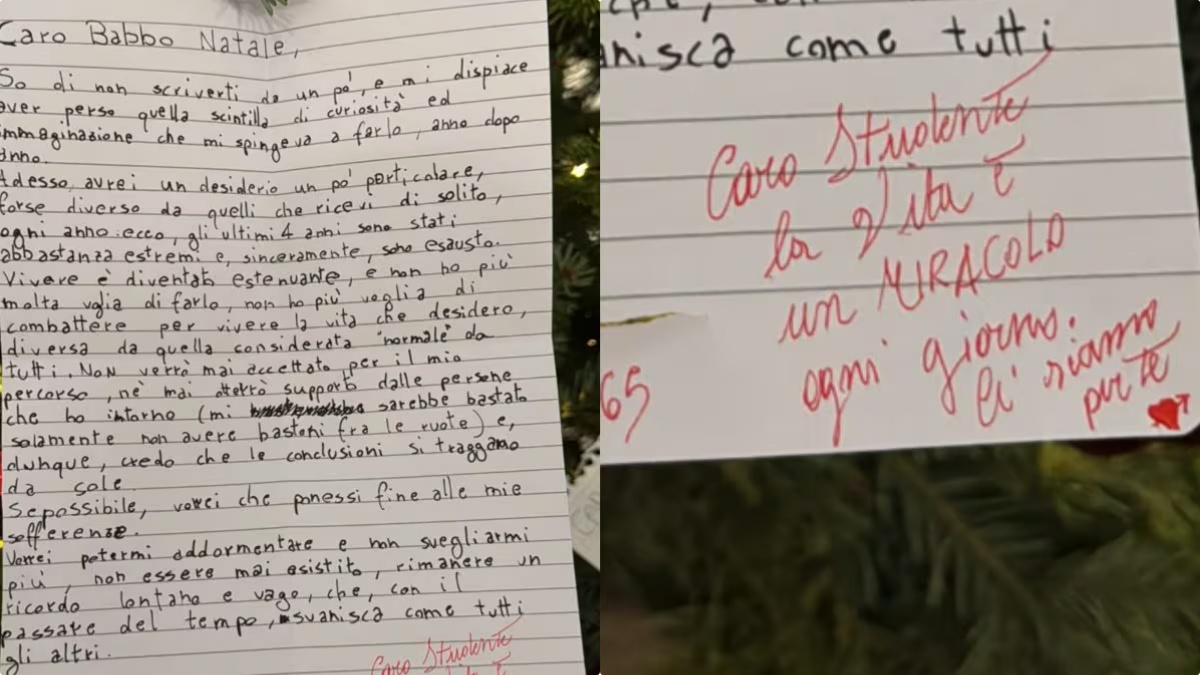 Caro Babbo Natale,
So di non scriverti da un pò, e mi dispiace
aver perso quella scintilla di curiosità ed
immaginazione che mi spingeva a farlo, anno dopo
anno.
Adesso, avrei un desiderio un pò particolare,
forse diverso da quelli che ricevi di solito,
ogni anno. ecco, gli ultimi 4 anni sono stati
abbastanza estremi e, sinceramente, sono esausto.
Vivere è diventato estenuante, e non ho più
molta voglia di farlo, non ho più voglia di
combattere per vivere la vita che desidero,
diversa da quella considerata "normale" da
tutti. Non verrò mai accettato per il mio
percorso, nè mai otterrò supporto dalle persone
che ho intorno (mi sarebbe bastato
solamente non avere bastoni fra le ruote) e,
dunque, credo che le conclusioni si traggano
da sole
Se possibile, vorrei che ponessi fine alle mie
sofferenze.
Vorrei potermi addormentare e non svegliarmi
più, non essere mai esistito, rimanere un
ricordo lontano e vago, che, con il
passare del tempo, svanisca come tutti
gli altri.
Caro Studente
anisca come tutti
Caro Studente
la Vita è
un MIRACOLO
ogni giorno.
Ci siamo
per te
65